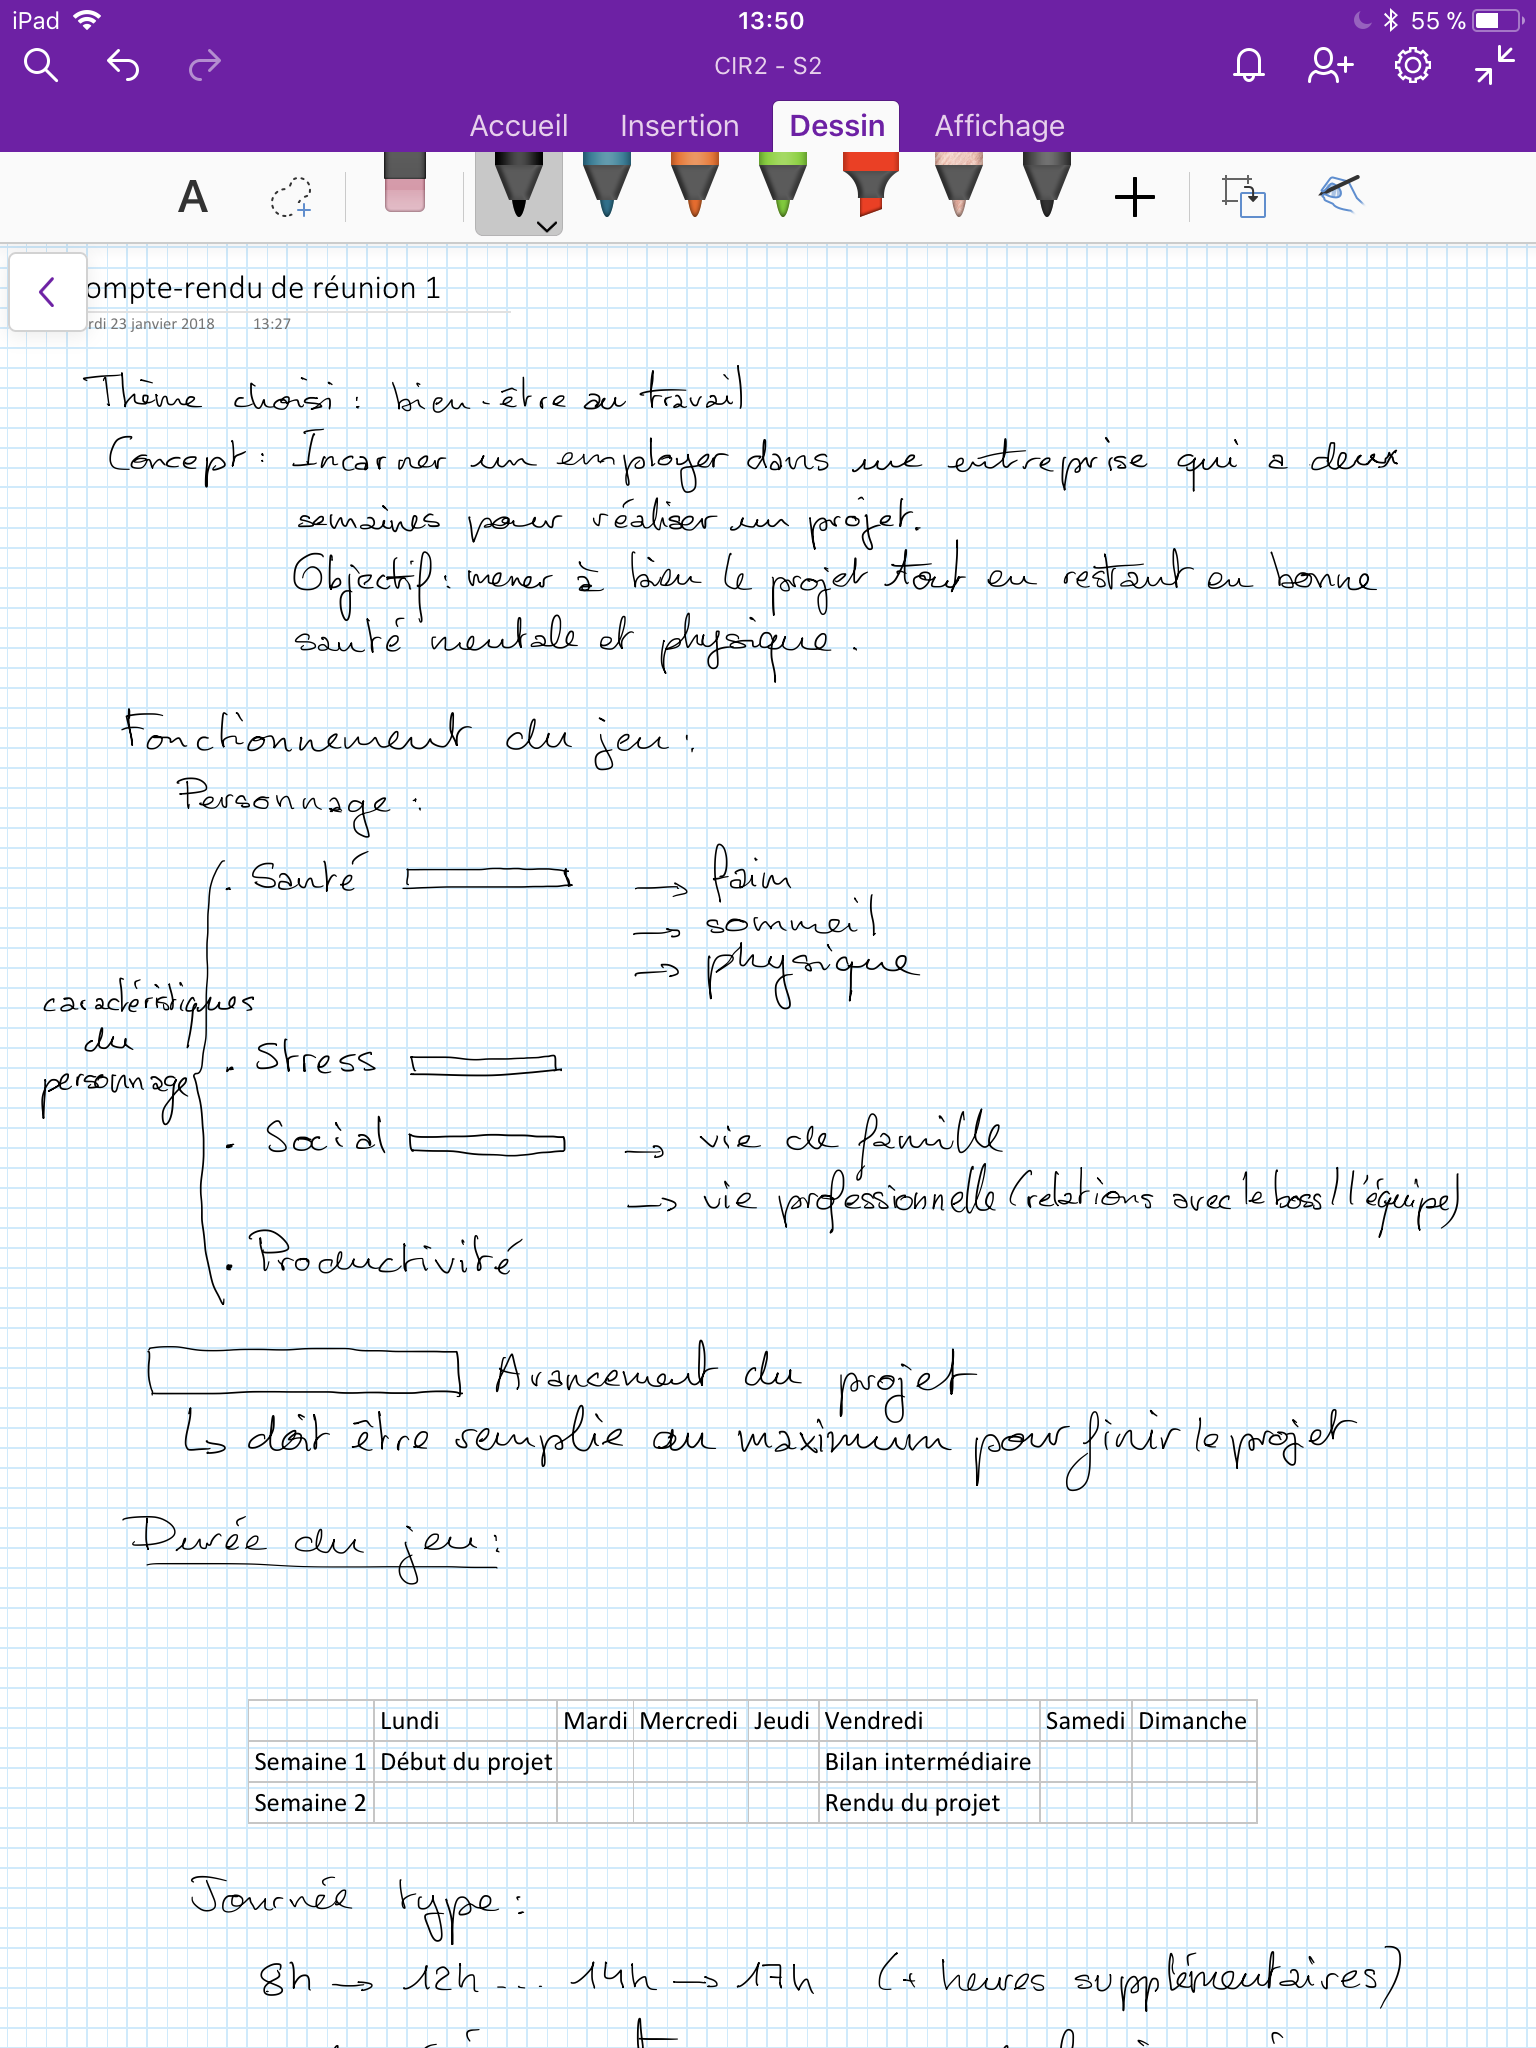 iPad 13:50 55 %
CIR2 - S2
Accueil Insertion Dessin Affichage
A
ompte-rendu de réunion 1
rdi 23 janvier 2018 13:27
Thème choisi : bien-être au travail
Concept : Incarner un employer dans une entreprise qui a deux
semaines pour réaliser un projet.
Objectif : mener à bien le projet tout en restant en bonne
santé mentale et physique.
Fonctionnement du jeu :
Personnage :
. Santé → faim
→ sommeil
→ physique
caractéristiques
du
personnage
. Stress
. Social → vie de famille
→ vie professionnelle (relations avec le boss / l'équipe)
. Productivité
Avancement du projet
↳ doit être remplie au maximum pour finir le projet
Durée du jeu :
Lundi Mardi Mercredi Jeudi Vendredi Samedi Dimanche
Semaine 1 Début du projet Bilan intermédiaire
Semaine 2 Rendu du projet
Journée type :
8h → 12h ... 14h → 17h (+ heures supplémentaires)